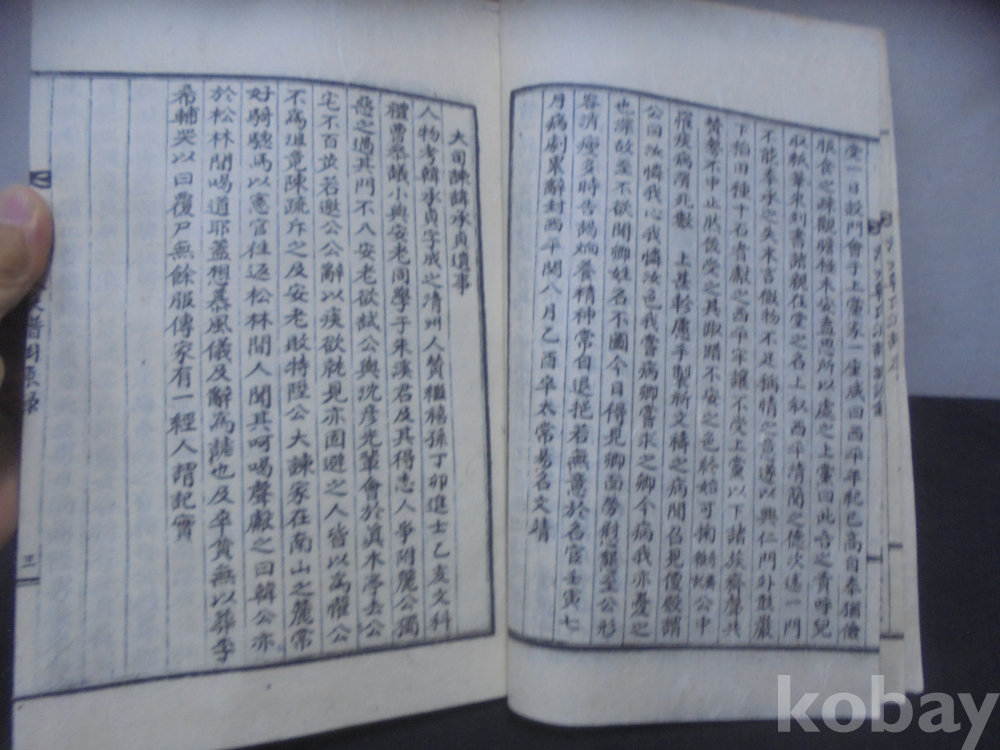 受一日設門會于上黨家一座咸曰西平年紀已高自奉猶儉
服食之疎觀瞻極未安盍思所以處之上黨曰此吾之責呼兒
取紙筆來列書諸親在堂之名上叙西平清簡之德次達一門
不能奉承之失末言微物不足稱情之意遂以興仁門外數嚴
下稻田種十石者獻之西平家讓不受上黨以下諸族齊聲共
贊勢不中止然後受之其踧踖不安之色終始可掬
罹疾病濱死數 上甚軫慮手製祈文禱之病間召見便殿謂
公曰汝憐我心我憐汝色我嘗病卿嘗求之卿今病我亦憂之
也深故至不欲聞卿姓名不圖今日得見卿面勞慰
容消瘦多時告謁烱養精神常自退挹若無意於名宦壬寅七
月病劇累辭封西平閏八月乙酉卒太常易名文靖
大司諫韓承貞遺事
人物考韓承貞字成之清州人贊繼禧孫丁卯進士乙亥文科
禮曹參議小與安老同學于朱溪君及其得志人爭附麗公獨
惡之過其門不入安老欲試公與沈彦光輩會於眞木亭去公
宅不百步若邀公公辭以疾欲就見亦固避之人皆以爲懼公
不爲沮竟陳疏斥之及安老敗特陞公大諫家在南山之麓常
好騎驄馬以憲官往返松林間人聞其呵喝聲獻之曰韓公亦
於松林間喝道耶蓋想慕風儀及辭爲謔也及卒貧無以葬李
希輔哭以曰覆尸無餘服傳家有一經人謂記實
三
kobay